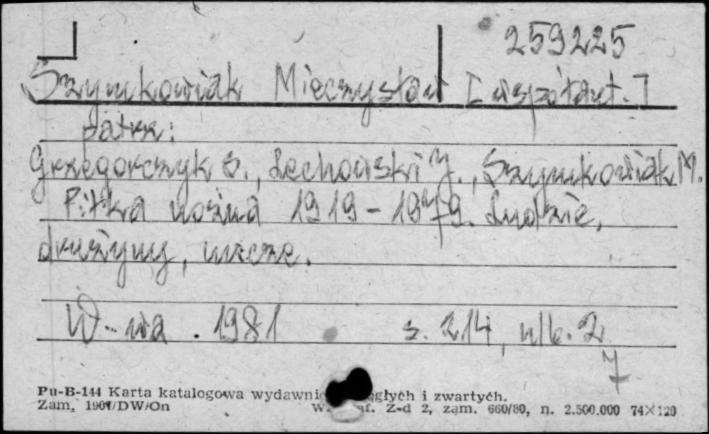 259225
Szymkowiak Mieczysław [współaut.]
patrz:
Grzegorczyk S., Lechowski J., Szymkowiak M.
Piłka nożna 1919-1979. Ludzie,
drużyny, mecze.
W-wa. 1981 s. 214, nlb. 2
7
Pu-B-144 Karta katalogowa wydawnic głych i zwartych.
Zam, 1901/DW/On W. af. Z-d 2, zam. 660/80, n. 2.500.000 74×120